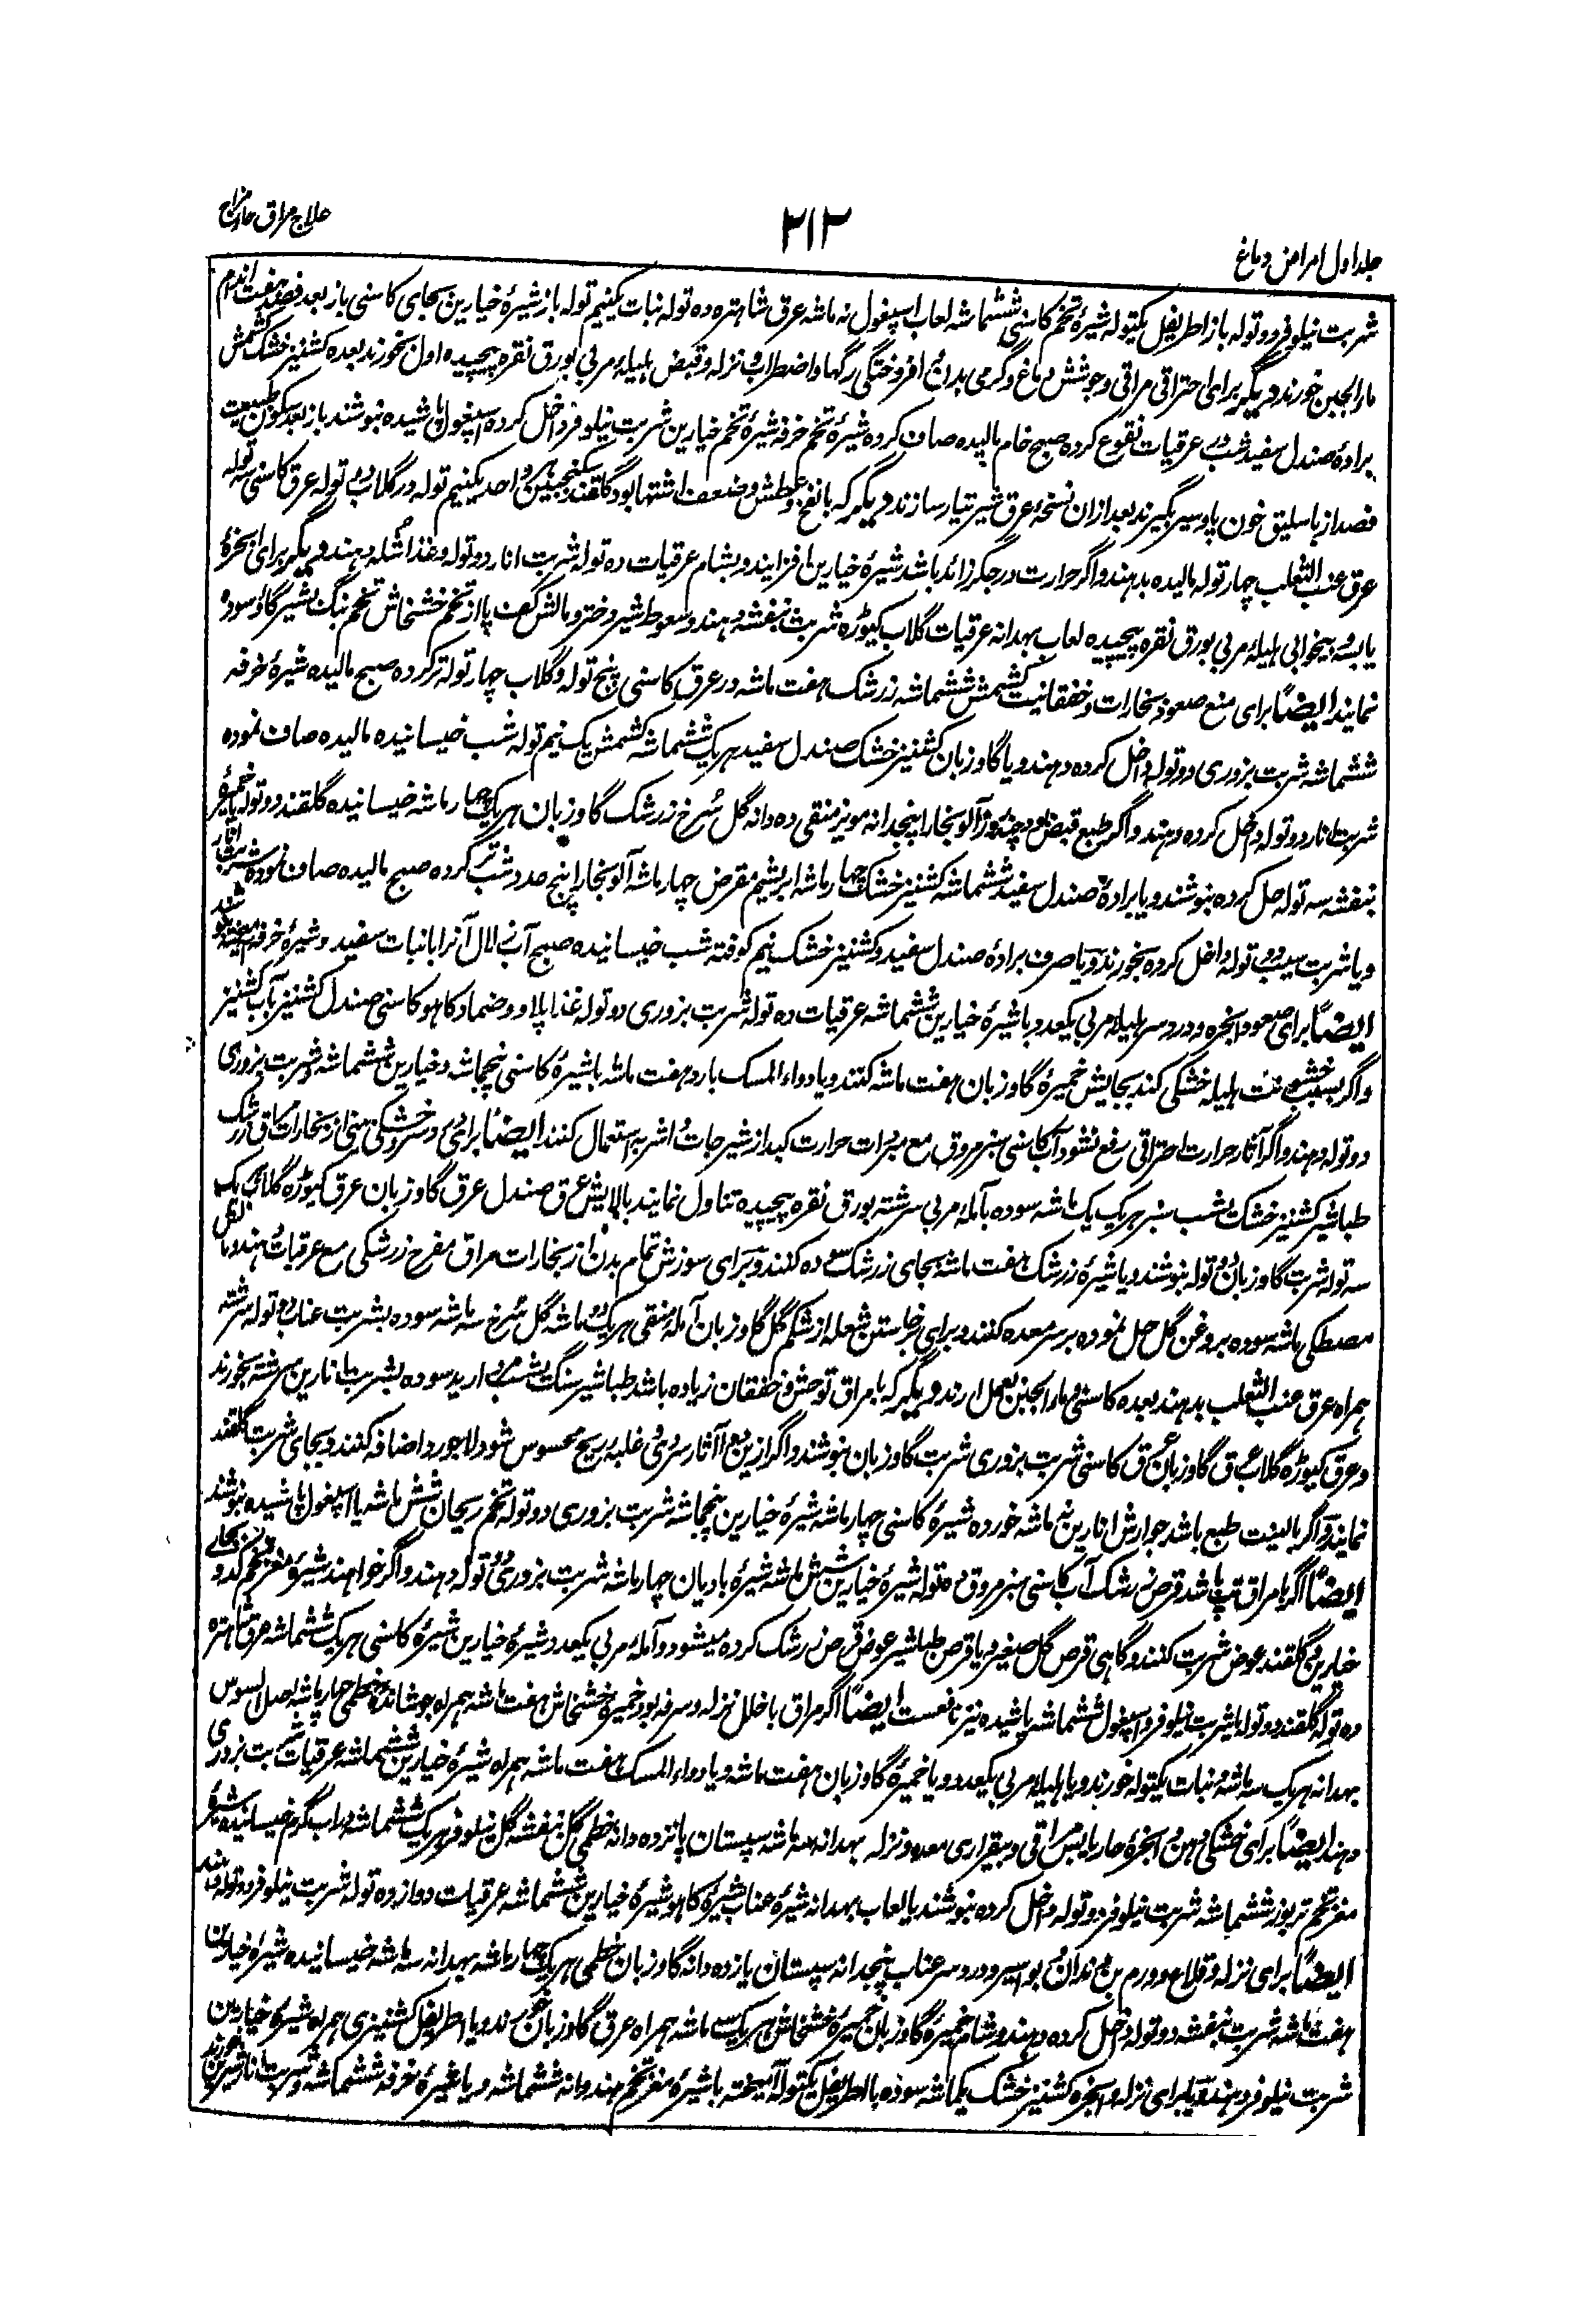 جلد اول امراض دماغ
۲۱۳
علاج مراق حار مزاج
شربت نیلوفر دو توله باز اطریفل یکتوله شیرۀ تخم کاسنی ششماشه لعاب اسپغول نه ماشه عرق شاهتره ده توله نبات یکنیم توله باز شیرۀ خیارین بجای کاسنی باز بعد فصد هفت اندام
ماء الجبن خورند دیگر برای احتراقی مراقی و جوشش دماغ و گرمی بدن و افروختگی رگها و اضطراب و نزله و قبض هلیله مربی بورق نقره پیچیده اول بخورند بعده کشنیز خشک کشمش
برادۀ صندل سفید شب در عرقیات نقوع کرده صبح خام مالیده صاف کرده شیرۀ تخم خرفه شیرۀ تخم خیارین شربت نیلوفر داخل کرده اسپغول پاشیده بنوشند باز بعد سکون طبیعت
فصد از باسلیق خون پاو سیر بگیرند بعد ازان نسخۀ عرق شیر تیار سازند دیگر که با نفخ و عطش و ضعف اشتها بود گلقند سکنجبین هر واحد یکنیم توله در گلاب دو توله عرق کاسنی سه توله
عرق عنب الثعلب چهار توله مالیده بدهند و اگر حرارت در جگر زائد باشد شیرۀ خیارین افزایند و بشام عرقیات ده توله شربت انار دو توله و غذا شله دهند دیگر برای ابخرۀ
یابسه و بیخوابی هلیلۀ مربی بورق نقره پیچیده لعاب بهدانه عرقیات گلاب کیوڑه شربت بنفشه دهند و سعوط شیر دختر و مالش کف پا از تخم خشخاش تخم بنگ بشیر گاؤ سوده
نمایند ایضاً برای منع صعود بخارات و خفقانیت کشمش ششماشه زرشک هفت ماشه در عرق کاسنی پنج توله و گلاب چهار توله تر کرده صبح مالیده شیرۀ خرفه
ششماشه شربت بزوری دو توله داخل کرده دهند و یا گاوزبان کشنیز خشک صندل سفید هر یک ششماشه کشمش یک نیم توله شب خیسانیده مالیده صاف نموده
شربت انار دو توله داخل کرده دهند و اگر طبع قبض بود چند روز آلو بخارا پنجدانه مویز منقی ده دانه گل سُرخ زرشک گاوزبان هر یک چهار ماشه خیسانیده گلقند دو توله یا خمیرۀ
بنفشه سه توله حل کرده بنوشند و یا برادۀ صندل سفید ششماشه کشنیز خشک چهار ماشه ابریشم مقرض چهار ماشه آلو بخارا پنج عدد شب تر کرده صبح مالیده صاف نموده شربت انار
و یا شربت سیب دو توله داخل کرده بخورند و یا صرف برادۀ صندل سفید و کشنیز خشک نیم کوفته شب خیسانیده صبح آب زلال آنرا با نبات سفید و شیرۀ خرفه
ایضاً برای صعود ابخره و درد سر هلیله مربی یکعدد با شیرۀ خیارین ششماشه عرقیات ده توله شربت بزوری دو توله غذا پلاو و ضماد کاهو کاسنی صندل کشنیز بآب کشنیز
و اگر بسبب خشونت هلیله خشکی کند بجایش خمیرۀ گاوزبان هفت ماشه کنند و یا دواء المسک بارد هفت ماشه با شیرۀ کاسنی پنجماشه و خیارین ششماشه و شربت بزوری
دو توله دهند و اگر آثار حرارت احتراقی رفع نشود آب کاسنی سبز مروق مع مبردات حرارت کبد از شیرجات و اشربه استعمال کنند ایضاً برای درد سر و خشکی بینی از بخارات مراقی زرشک
طباشیر کشنیز خشک یشب سبز هر یک یک ماشه سوده بآملۀ مربی سرشته بورق نقره پیچیده تناول نمایند بالایش عرق صندل عرق گاوزبان عرق کیوڑه گلاب هر یک
سه توله شربت گاوزبان دو توله بنوشند و یا شیرۀ زرشک هفت ماشه بجای زرشک سوده کنند و برای سوزش تمام بدن از بخارات مراق مفرح زرشکی مع عرقیات دهند و
مصطکی ماشه سوده بروغن گل حل نموده بر سر معده کنند و برای برخاستن شعله از شکم گل گاوزبان آملۀ منقی هر یک دو ماشه گل سُرخ سه ماشه سوده بشربت عناب دو توله سرشته
همراه عرق عنب الثعلب بدهند بعده کاسنی و ماء الجبن بعمل آرند دیگر که با مراق توحش و خفقان زیاده باشد طباشیر سنگ یشب مروارید سوده بشربت انارین سرشته بخورند
و عرق کیوڑه گلاب عرق گاوزبان عرق کاسنی شربت بزوری شربت گاوزبان بنوشند و اگر ازین دوا آثار سردی و غلبۀ ریح محسوس شود لاجورد اضافه کنند و بجای شربت گلقند
نمایند و اگر با لینت طبع باشد جوارش انارین نه ماشه خورده شیرۀ کاسنی چهار ماشه شیرۀ خیارین پنجماشه شربت بزوری دو توله تخم ریحان شش ماشه یا اسپغول پاشیده بنوشند
ایضاً اگر با مراق تپ باشد قرص زرشک آب کاسنی سبز مروق ده توله شیرۀ خیارین شش ماشه شیرۀ بادیان چهار ماشه شربت بزوری دو توله دهند و اگر خواهند شیرۀ مغز تخم کدو بجای
خیارین و گلقند عوض شربت کنند و گاهی قرص گل صغیر و یا قرص طباشیر عوض قرص زرشک کرده میشود و آملۀ مربی یکعدد شیرۀ خیارین شیرۀ کاسنی هر یک ششماشه عرق شاهتره
ده توله گلقند دو توله یا شربت نیلوفر اسپغول ششماشه پاشیده نیز نافعست ایضاً اگر مراق با خلل نزله و سرفه بود خمیرۀ خشخاش هفت ماشه همراه جوشاندۀ خطمی چهار ماشه اصل السوس
بهدانه هر یک سه ماشه و نبات یکتوله خورند و یا هلیله مربی یکعدد و یا خمیرۀ گاوزبان هفت ماشه و یا دواء المسک هفت ماشه همراه شیرۀ خیارین ششماشه عرقیات شربت بزوری
دهند ایضاً برای خشکی دهن و ابخرۀ حار یابس مراقی و بیقراری معده و نزله بهدانه سه ماشه سپستان پانزده دانه خطمی گل بنفشه گل نیلوفر هر یک ششماشه در آب گرم خیسانیده شیرۀ
مغز تخم تربوز ششماشه شربت نیلوفر دو توله داخل کرده بنوشند یا لعاب بهدانه شیرۀ عناب شیرۀ کاهو شیرۀ خیارین ششماشه عرقیات دوازده توله شربت نیلوفر دو توله دهند
ایضاً برای نزله و قلاع و ورم بن دندان و بواسیر و درد سر عناب پنجدانه سپستان یازده دانه گاوزبان خطمی هر یک چهار ماشه بهدانه سه ماشه خیسانیده شیرۀ خیارین
هفت ماشه شربت بنفشه دو توله داخل کرده دهند و شام خمیرۀ گاوزبان خمیرۀ خشخاش هر یک سه ماشه همراه عرق گاوزبان خورند و یا اطریفل کشنیزی همراه شیرۀ خیارین
شربت نیلوفر دهند و یا برای نزله و ابخره کشنیز خشک یکماشه سوده باطریفل یکتوله آمیخته با شیرۀ مغز تخم هندوانه ششماشه و یا شیرۀ خرفه ششماشه و شربت انار شیرین خورند